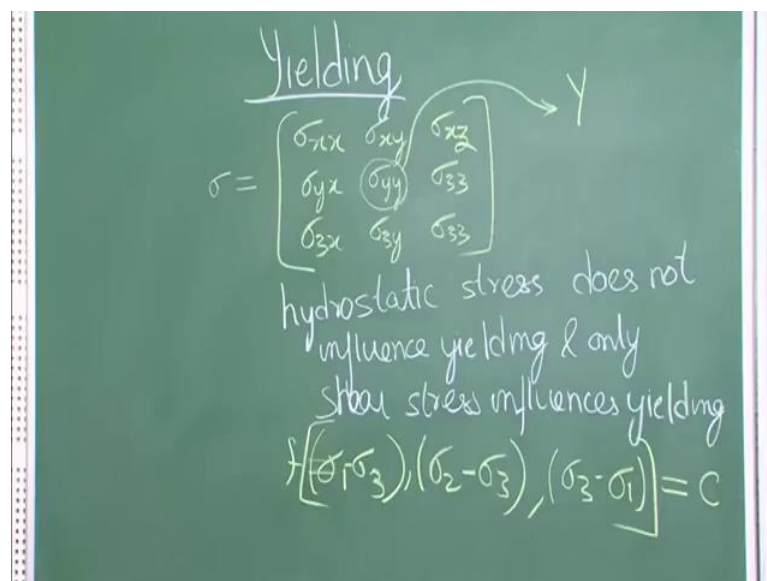 Yielding
Y
σxx σxy σxz
σ = σyx σyy σ33
σ3x σ3y σ33
hydrostatic stress does not
influence yielding & only
shear stress influences yielding
f[(σ1-σ3),(σ2-σ3),(σ3-σ1)] = C